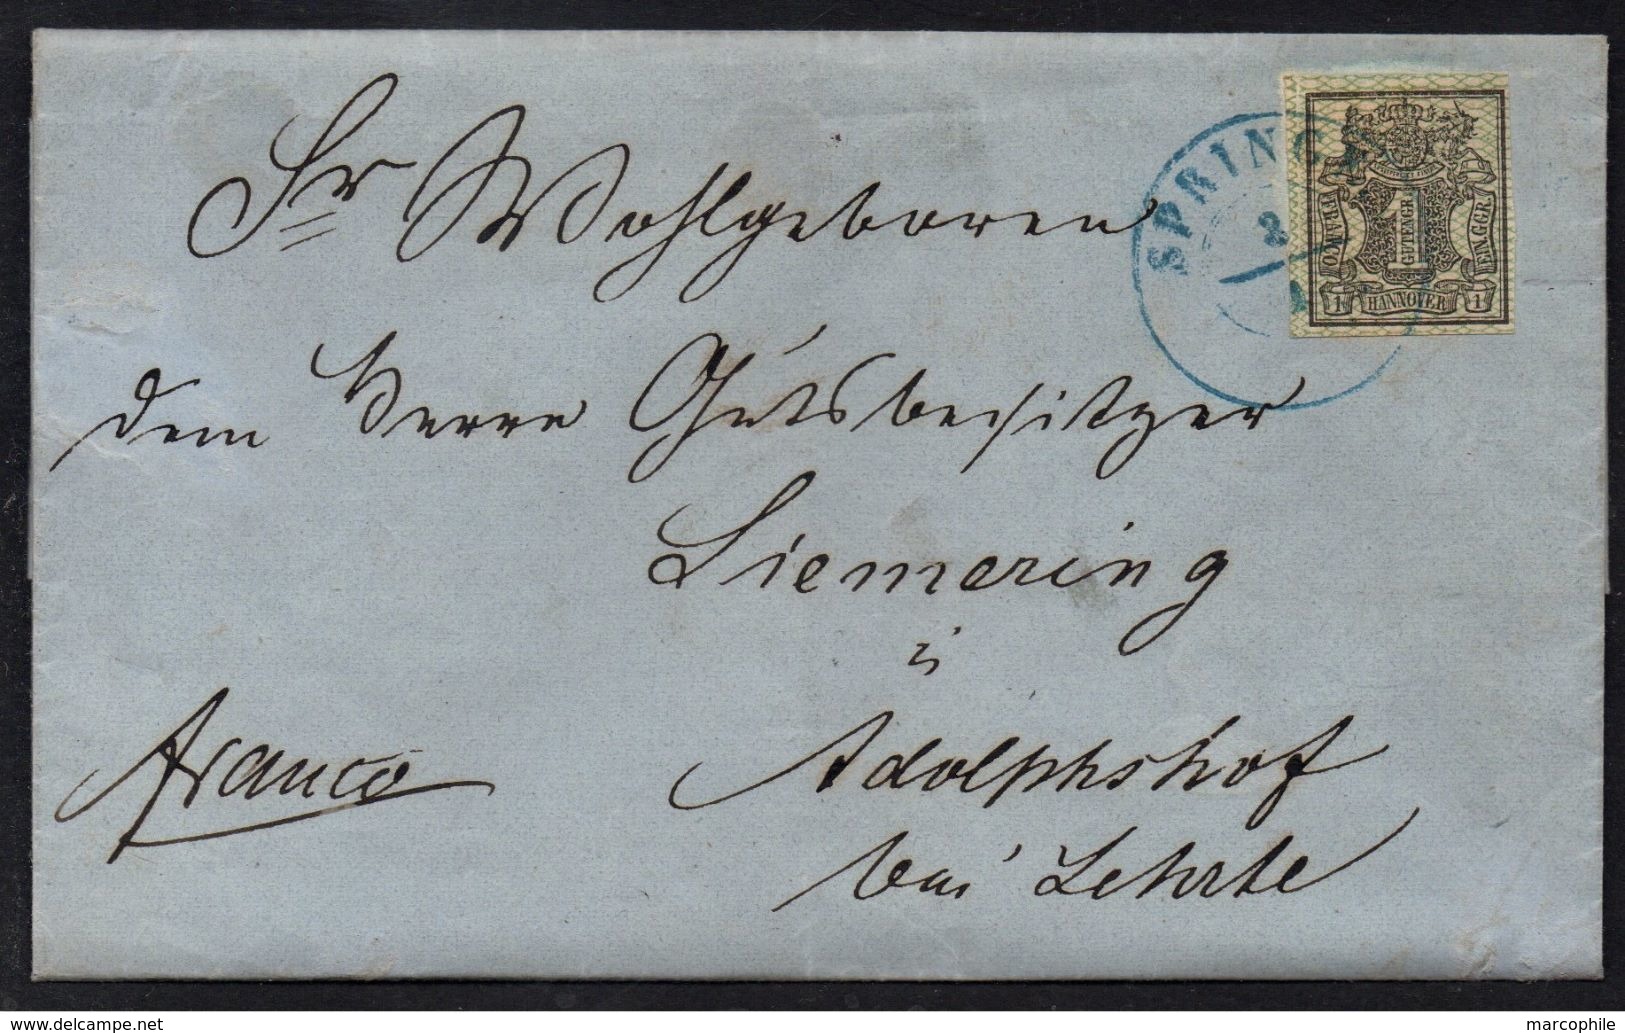 Sr Wohlgeboren
dem Herrn Gutsbesitzer
Siemering
in
Adolphshof
bei Lehrte
Franco
SPRINGE
1 GUTENGR.
FRANCO.
EIN GGR.
1 HANNOVER 1
www.delcampe.net
marcophile